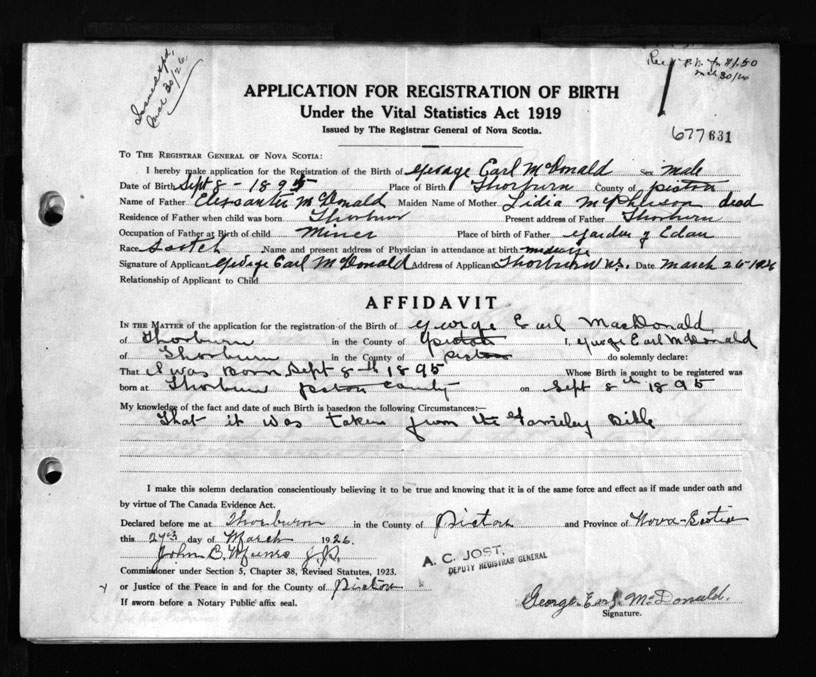 Rec'd P.N. for $1.50
Mch 30/26
Mch 30/26.
APPLICATION FOR REGISTRATION OF BIRTH
Under the Vital Statistics Act 1919
Issued by The Registrar General of Nova Scotia.
677631
To The Registrar General of Nova Scotia:
I hereby make application for the Registration of the Birth of George Earl McDonald Sex male
Date of Birth Sept 8 - 1895 Place of Birth Thorburn County of Pictou
Name of Father McDonald Maiden Name of Mother Lidia McPherson dead
Residence of Father when child was born Thorburn Present address of Father Thorburn
Occupation of Father at Birth of child Miner Place of birth of Father Garden of Edan
Race Scotch Name and present address of Physician in attendance at birth midwife
Signature of Applicant George Earl McDonald Address of Applicant Thorburn N.S. Date March 26-1926
Relationship of Applicant to Child
AFFIDAVIT
In the Matter of the application for the registration of the Birth of George Earl MacDonald
of Thorburn in the County of Pictou I, George Earl McDonald
of Thorburn in the County of Pictou do solemnly declare:
That I was born Sept 8th 1895 Whose Birth is sought to be registered was
born at Thorburn Pictou County on Sept 8th 1895
My knowledge of the fact and date of such Birth is based on the following Circumstances:—
That it was taken from the Family Bible
I make this solemn declaration conscientiously believing it to be true and knowing that it is of the same force and effect as if made under oath and
by virtue of The Canada Evidence Act.
Declared before me at Thorburn in the County of Pictou and Province of Nova-Scotia
this 27th day of March 1926.
John B. Munro J.P.
A. C. JOST,
DEPUTY REGISTRAR GENERAL
Commissioner under Section 5, Chapter 38, Revised Statutes, 1923.
or Justice of the Peace in and for the County of Pictou
If sworn before a Notary Public affix seal.
George Earl McDonald.
Signature.